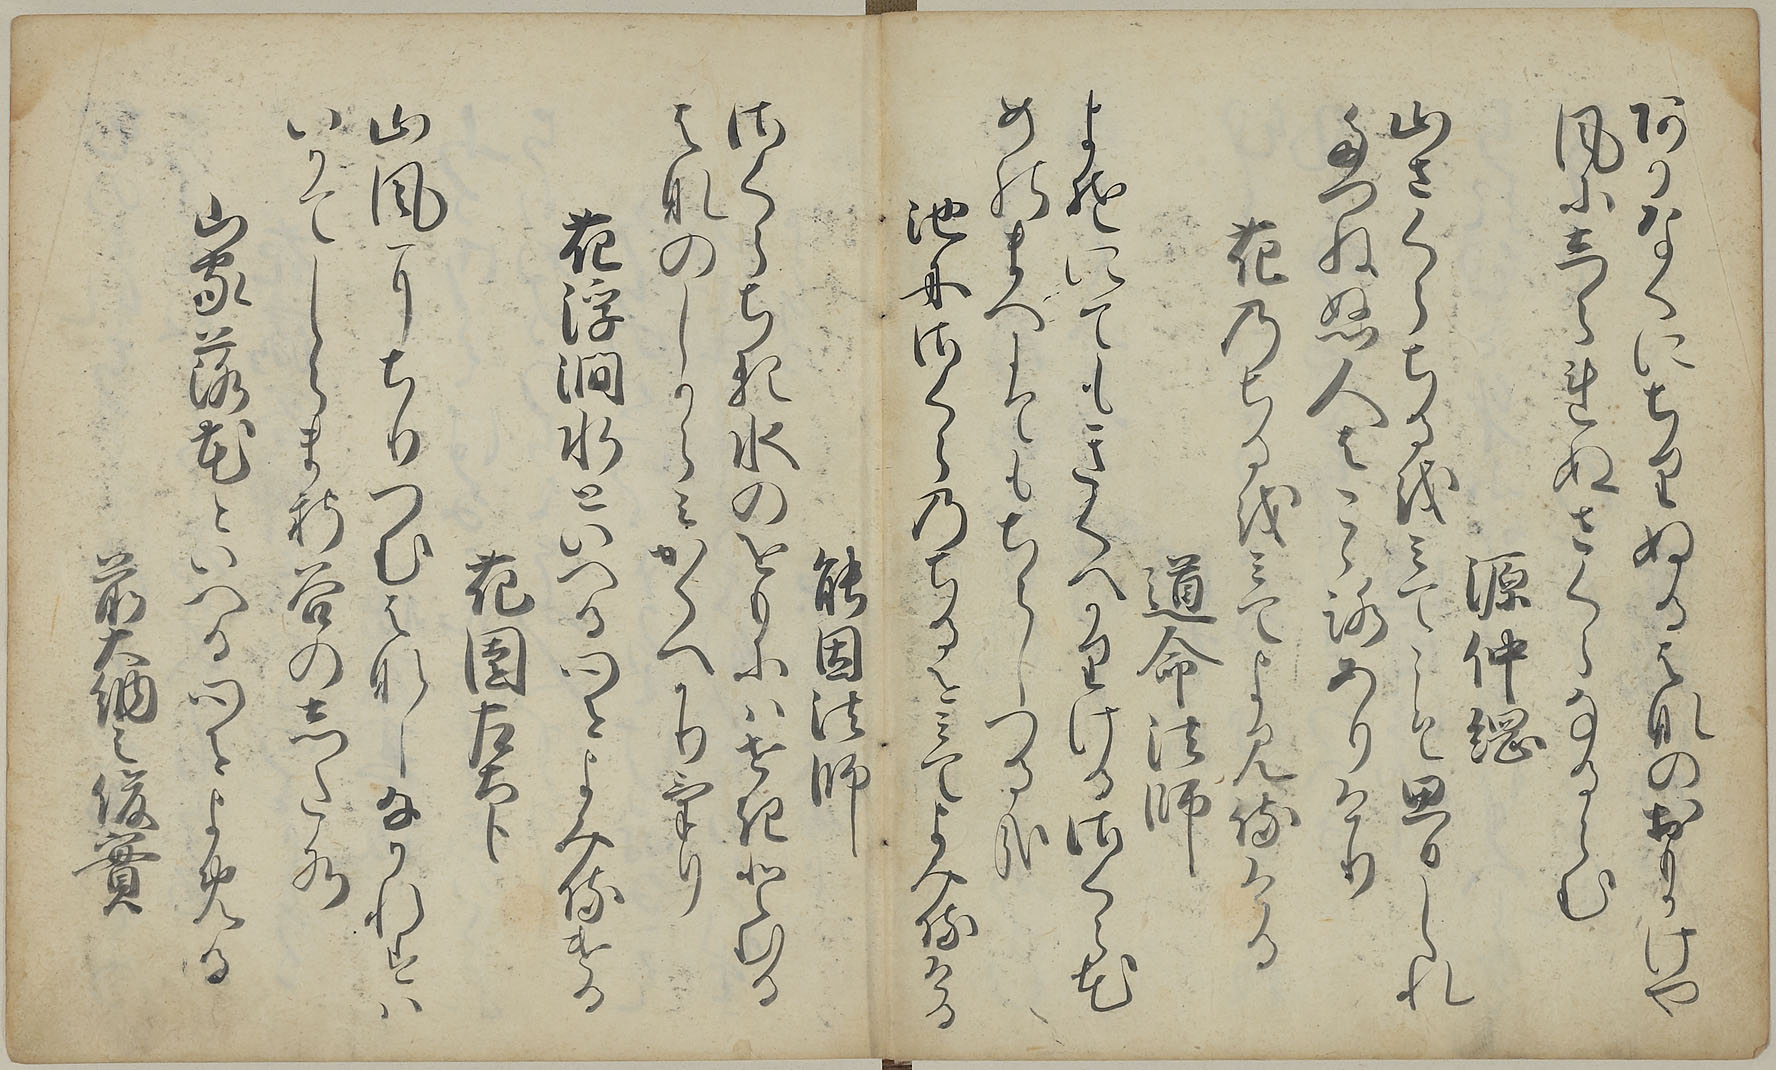 阿かなくにちりぬるはなのおもかけや
風にしられぬさくらなるらむ
源仲綱
山さくらちるを見てこそ思しれ
たつねぬ人はこゝろありけり
花のちるを見てよみ侍ける
道命法師
よそにてもきくへかりけるさくら花
めのまへにてもちらしつる哉
池にさくらのちるを見てよみ侍ける
能因法師
さくらちる水のおもにはせきとむる
はなのしからみかくへかりけり
花浮澗水といへる心をよみ侍ける
花園左大臣
山風にちりつむはなしなかれすは
いかてしらまし谷のした水
山家落花といへる心をよめる
前大納言俊實